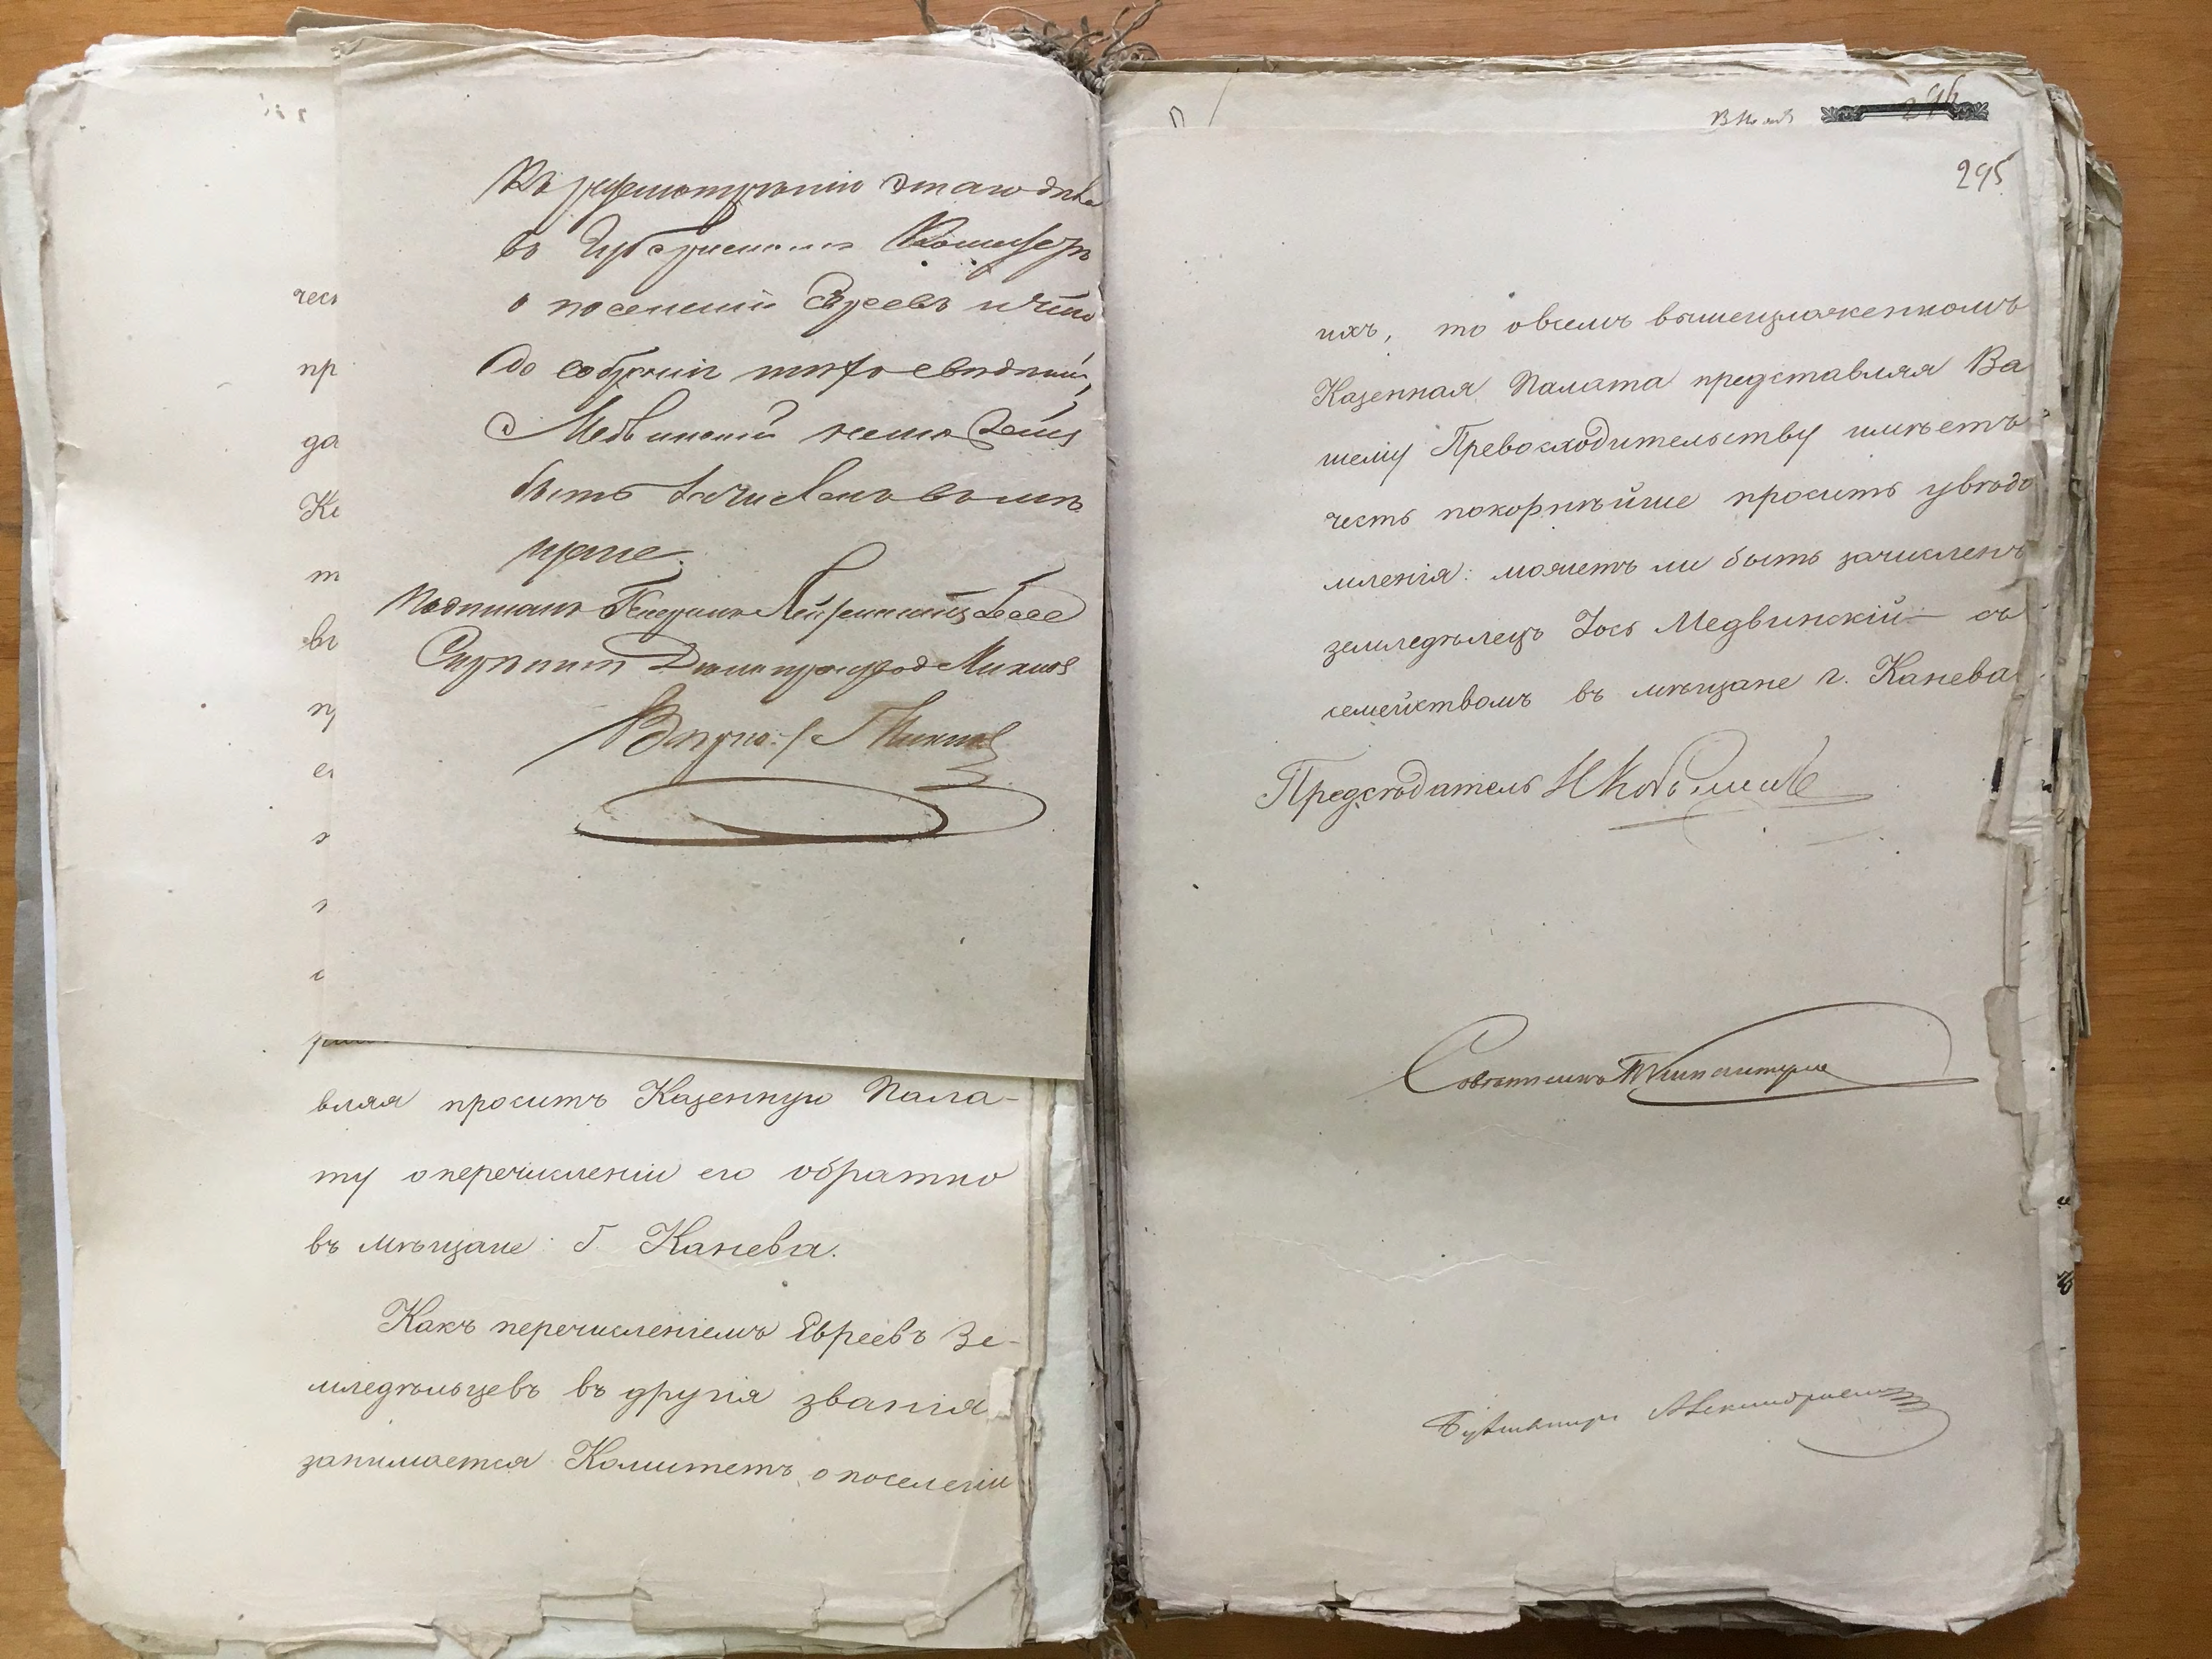 къ разсмотрѣнію этаго дѣла
въ Губернскомъ Комитетѣ
о поселеніи Евреевъ и что
до собранія сихъ свѣдѣній,
Медвинскій не можетъ
быть зачисленъ въ мѣ
щане.
Подписалъ Генералъ Лейтенантъ
Скрѣпилъ
Вѣрно:
чест
пр
да
Ке
т
вы
п
вляя проситъ Казенную Пала-
ту о перечисленіи его обратно
въ мѣщане Г. Канева.
Какъ перечисленіемъ Евреевъ Зе-
мледѣльцевъ въ другія званія
занимается Комитетъ о поселеніи
296
295
ихъ, то о всемъ вышеизложенномъ
Казенная Палата представляя Ва
шему Превосходительству имѣетъ
честь покорнѣйше просить увѣдо
мленія: можетъ ли быть зачисленъ
земледѣлецъ Іось Медвинскій съ
семействомъ въ мѣщане г. Канева
Предсѣдатель
Совѣтникъ
Бухгалтеръ